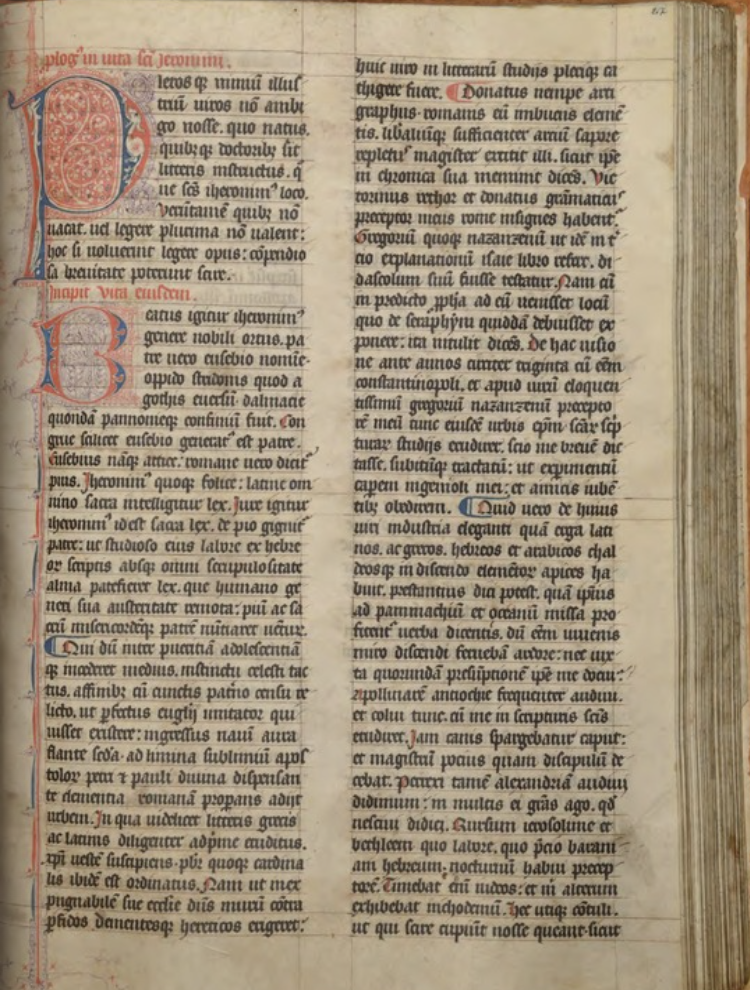 ꝓlogꝰ in vita sc̄i Jeronimi.
Pleros qꝫ nimiū illus
triū uiros nō ambi
go nosse. quo natus.
quibꝫqꝫ doctoribꝫ sit
litteris instructus. q̄
ue sc̄s iheronimꝰ loco.
Verūtamē quibꝫ nō
uacat. uel legere plurima nō ualent:
hoc si uoluerint legere opus: cōpendio
sa breuitate poterunt scire.
Incipit vita eiusdem.
Beatus igitur iheronimꝰ
genere nobili ortus. pa
tre uero eusebio nomine.
oppido stridonis quod a
gothis euersū. dalmacie
quondā pannomieqꝫ confiniū fuit. Con
grue scilicet eusebio generatꝰ est patre.
Eusebius nāqꝫ attice. romane uero dicitꝰ
pius. Iheronimꝰ quoque solice: latine om
nino sacra intelligitur lex. Jure igitur
iheronimꝰ id est sacra lex. de pio gignitꝰ
patre: ut studioso eius labore ex hebre
or scriptis absqꝫ omni scrupulositate
alma patefieret lex. que humano ge
neri sua austeritate remota: piū ac sa
crū misericordēqꝫ patrē nūtiaret uēturū.
¶ Qui dū inter pueritiā adolescentiā
qꝫ incederet medius. instinctu celesti tac
tus. affinibꝫ cū cunctis patrio censu re
licto. ut ꝑfectus euāglij imitator qui
uisset existere: ingressus nauī aura
flante scd̄a. ad limina sublimiū apos
tolor petri ⁊ pauli diuina dispensan
te clementia romanā properans adijt
urbem. In qua uidelicet litteris grecis
ac latinis diligenter adprime eruditus.
xp̄i uestē suscipiens. pbr̄ quoqꝫ cardina
lis ibidē est ordinatus. Nam ut inex
pugnabilē sue ecclie dn̄s murū cōtra
ꝑfidos dementesqꝫ hereticos erigeret:
huic uiro in litterarū studijs plerique ca
thigete fuere. ¶ Donatus nempe arti
graphus. romanis eū imbuens elemē
tis. libaliūqꝫ sufficienter artiū sapore
repletꝰ magister extitit illi. sicut ip̄e
in chronica sua meminit dicēs. Vic
torinus rethor et donatus grāmaticꝰ
preceptor meus rome insignes habent̄.
Gregoriū quoqꝫ nazanzenū ut idē in t̄
cio explanationū isaie libro refert. di
dascolum suū fuisse testatur. Nam cū
in predicto ꝓpha ad eū uenisset locū
quo de seraphym quiddā debuisset ex
ponere: ita intulit dicēs. De hac uisio
ne ante annos circiter triginta cū eēm
constantinopoli. et apud uirū eloquen
tissimū gregoriū nazanzenū precepto
rē meū tunc eiusdē urbis ep̄m scār sc̄p
turar studijs erudirer. scio me breuē dic
tasse. subitūqꝫ tractatū: ut experimentū
caperem ingenioli mei: et amicis iubē
tibꝫ obedirem. ¶ Quid uero de huius
uiri industria eleganti quā erga lati
nos. ac grecos. hebreos et arabicos chal
deosqꝫ in discendo elementor apices ha
buit. prestantius dici potest. quā ipsius
ad pammachiū et oceanū missa pro
fitent̄ uerba dicentis. dū eēm iuuenis
miro discendi feruebā ardore: nec iux
ta quorundā presūptionē ip̄e me docui:
Apollinarē antioche frequenter audiui.
et colui tunc. cū me in scripturis sc̄is
erudiret. Jam canis spargebatur caput:
et magistrū pocius quam discipulū de
cebat. Perrexi tamē alexandriā audiui
didimum: in multis ei grās ago. qd̄
nesciui didici. Rursum ierosolime et
bethleem quo labore. quo p̄cio barani
am hebreum. nocturnū habui precep
torē. Timebat eī iudeos: et in alterum
exhibebat nichodemū. Hec utiqꝫ cōtuli.
ut qui scire cupiūt nosse queant. sicut